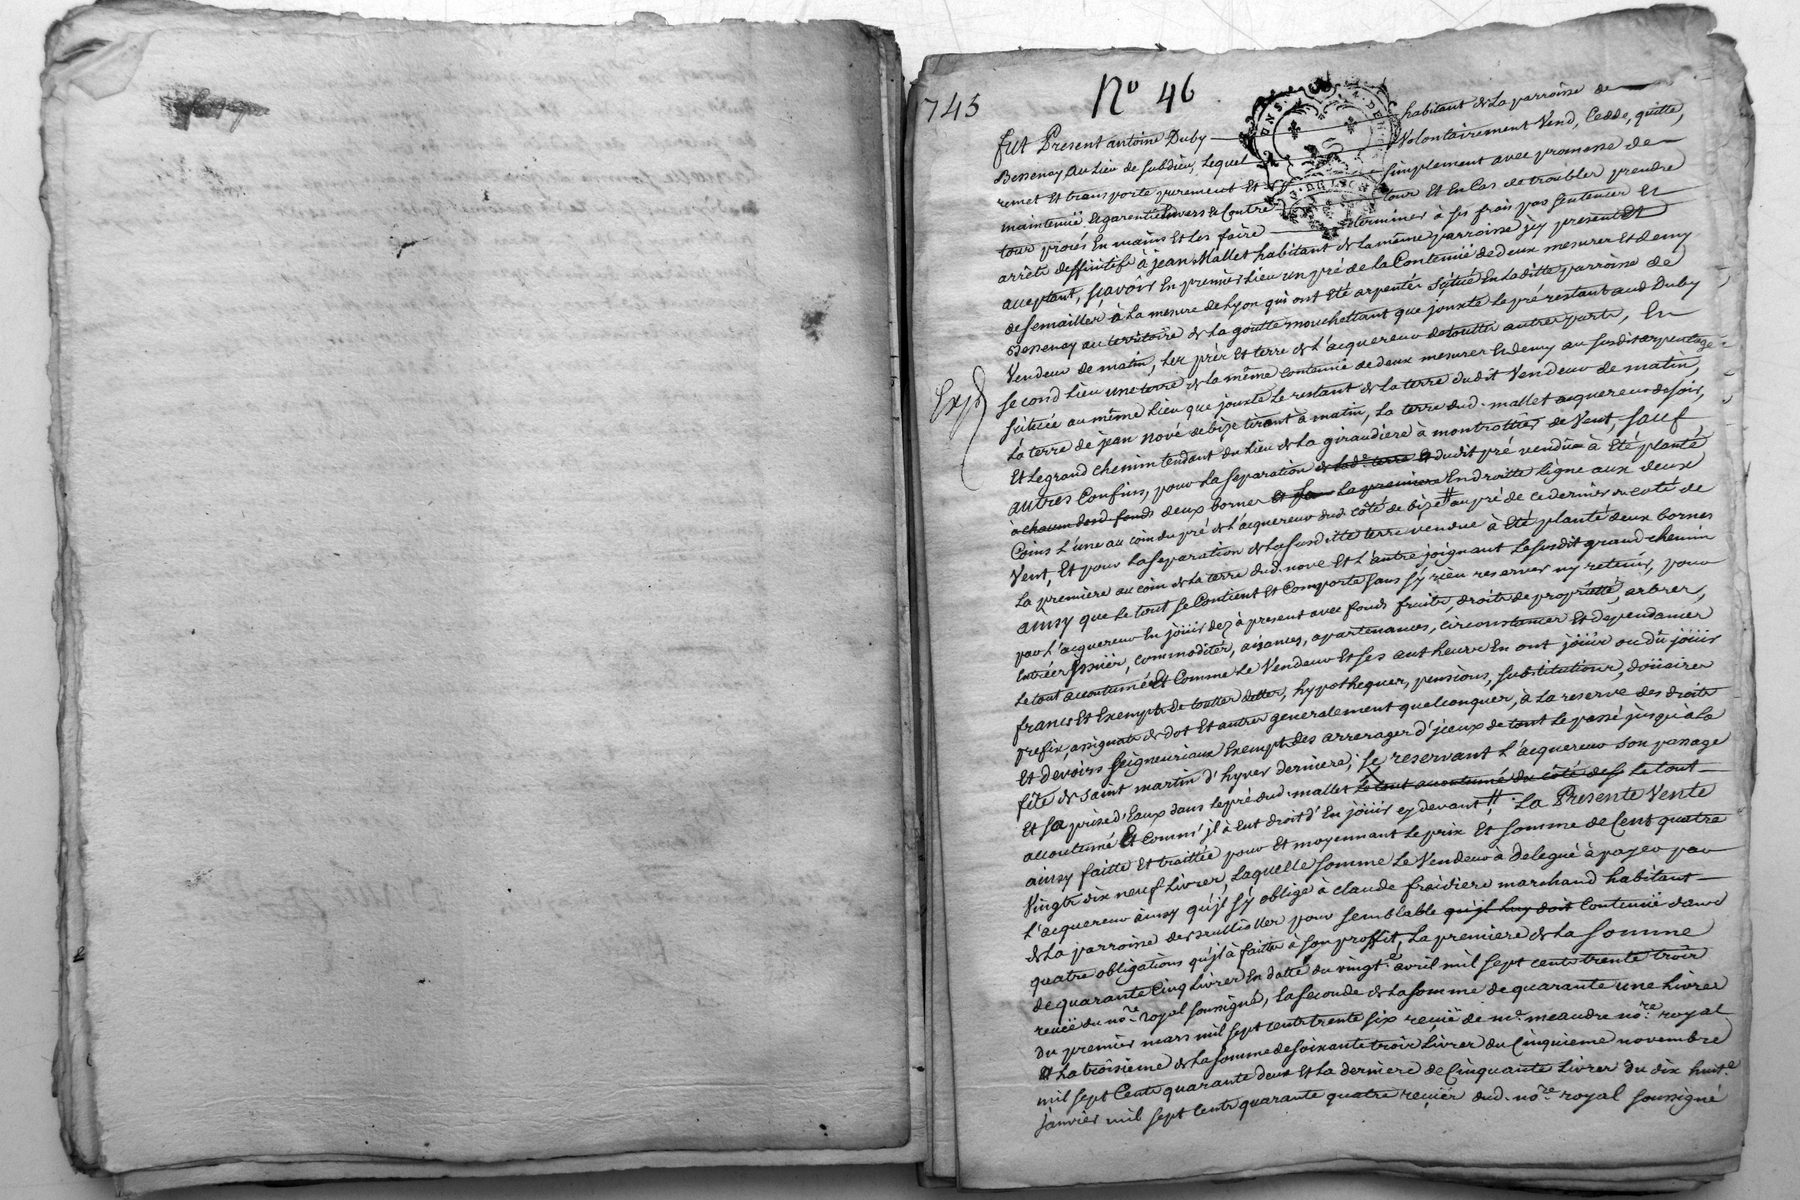 745
No 46
fut Present antoine Duby habitant de la parroisse de
Bessenay au lieu de subdieu, lequel volontairement vend, cedde, quitte,
remet et transporte purement et simplement avec promesse de
maintenüe de garentie Envers et Contre tour et en cas de troubler prendre
tour procés En mains et les faire terminer à ses frais par sentence et
arrêts deffinitifs à jean Mallet habitant de la même parroisse jcy present et
acceptant, sçavoir En premier lieu un pré de la Contenüe de deux mesurer et demy
de semailler à la mesure de lyon qui ont été arpentés sitüé En laditte parroisse de
Bessenay au territoire de la goutte mouchettant que jouxte le pré restant aud Duby
vendeur de matin, les prér et terre de l'acquereur de touttes autres parts, En
second lieu une terre de la même contenüe de deux mesurer et demy au susdit arpentage
sitüée au même lieu que jouxte le restant de la terre dudit vendeur de matin,
la terre de jean nové de bize tirant à matin, la terre dud. mallet acquereur de soir,
Exp
Et le grand chemin tendant du lieu de la giraudiere à montrottier de vent, sauf
autres Confins, pour la separation de lade terre et dudit pré vendu à été planté
à chacun desd. fonds deux bornes la premiere En droitte ligne aux deux
Coins l'une au coin du pré de l'acquereur dud. côté de bize # au pré de ce dernier du coté de
vent, Et pour la separation de la susditte terre vendue à été planté deux bornes
la premiere au coin de la terre dud. nove et l'autre joignant le susdit grand chemin
ainsy que le tout se Contient et Comporte sans s'y rien reserver ny retenir, pour
par l'acquereur En joüir dez à present avec fonds fruits, droits de proprieté, arbres,
Entrées jssües, commodités, aisances, apartenances, circonstances et dependances
le tout accoutumé Et Comme le vendeur et ses autheurs En ont joüir ou dû joüir
francs et Exempts de touttes dettes, hypotheques, pensions, substitutions, doüaires
prefix, assignats de dot et autres generalement quelconques, à la reserve des droits
et devoirs seigneuriaux Exempts des arrerages d'jceux de tout le passé jusqu'à la
fête de saint martin d'hyver derniere, se reservant l'acquereur son passage
Et sa prise d'Eaux dans le pré dud. mallet le tout accoutumé du côté des le tout
accoutumé Et Comm' jl à eut droit d'En joüir cy devant #. La Presente Vente
ainsy faitte et traittée pour et moyennant le prix et somme de Cent quatre
vingts dix neuf livres laquelle somme le vendeur à delegué à payer par
l'acquereur ainsy qu'jl s'y oblige à claude froidiere marchand habitant
de la parroisse de brullioller pour semblable qu'jl luy doit Contenüe dans
quatre obligations qu'jl à faittes à son proffit, la premiere de la somme
de quarante cinq livres En datte du vingt avril mil sept cents trente trois
recüe du nore royal soussigné, la seconde de la somme de quarante une livres
du premier mars mil sept cents trente six recüe de me meandre nore royal
et la troisieme de la somme de soixante trois livres du Cinquieme novembre
mil sept Cents quarante deux et la derniere de Cinquante livres du dix huite
janvier mil sept cents quarante quatre recües dud. nore royal soussigné